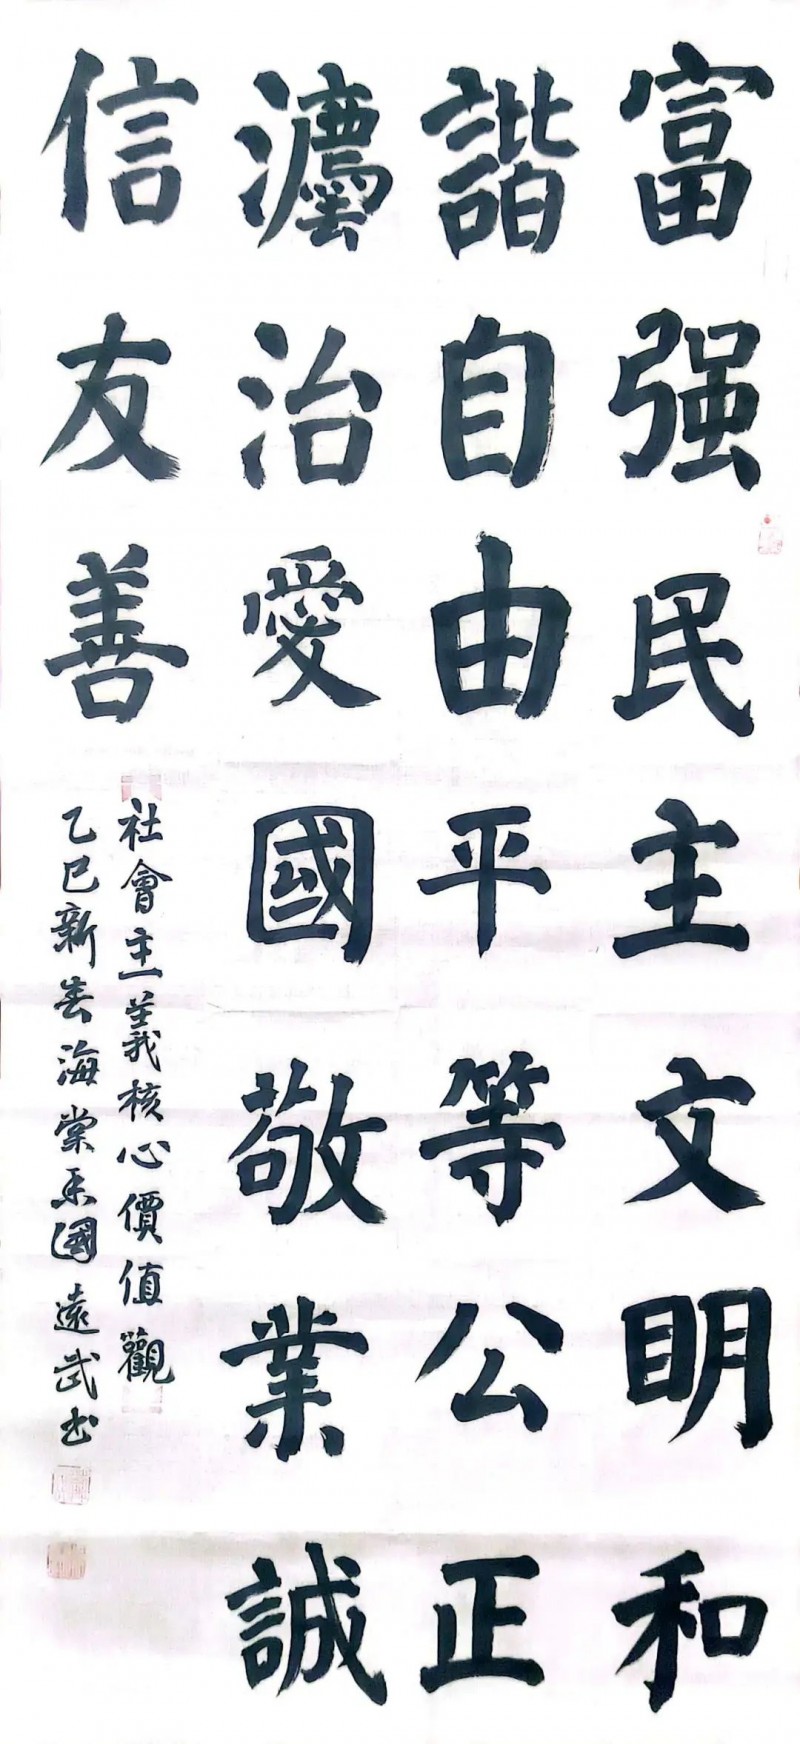 富强民主文明和
諧自由平等公正
灋治愛國敬業誠
信友善
社會主義核心價值觀
乙巳新春海棠國遠武书